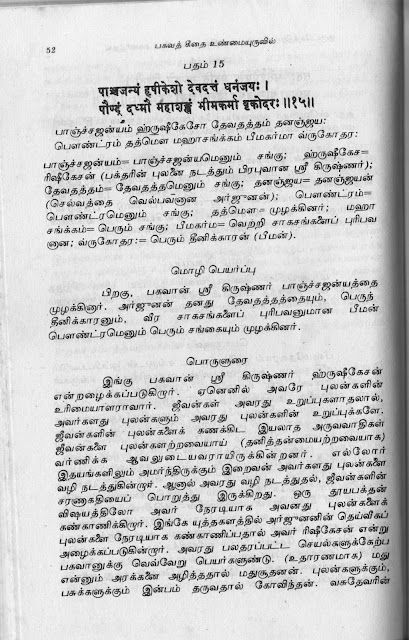 52
பகவத் கீதை உண்மையுருவில்
பதம் 15
पाञ्चजन्यं हृषीकेशो देवदत्तं धनंजयः ।
पौण्ड्रं दध्मौ महाशङ्खं भीमकर्मा वृकोदरः ॥१५॥
பாஞ்ச்சஜன்யம் ஹ்ருஷீகேசோ தேவதத்தம் தனஞ்ஜய:
பௌண்ட்ரம் தத்மௌ மஹாசங்க்கம் பீமகர்மா வ்ருகோதர:
பாஞ்ச்சஜன்யம்= பாஞ்ச்சஜன்யமெனும் சங்கு; ஹ்ருஷீகேச=
ரிஷிகேசன் (பக்தரின் புலனை நடத்தும் பிரபுவான ஸ்ரீ கிருஷ்ணர்);
தேவதத்தம்= தேவதத்தமெனும் சங்கு; தனஞ்ஜய= தனஞ்ஜயன்
(செல்வத்தை வெல்பவனான அர்ஜுனன்); பௌண்ட்ரம்=
பௌண்ட்ரமெனும் சங்கு; தத்மௌ= முழக்கினர்; மஹா
சங்க்கம்= பெரும் சங்கு; பீமகர்ம= வெற்றி சாகசங்களைப் புரிபவ
னான; வ்ருகோதர:= பெரும் தீனிக்காரன் (பீமன்).
மொழி பெயர்ப்பு
பிறகு, பகவான் ஸ்ரீ கிருஷ்ணர் பாஞ்ச்சஜன்யத்தை
முழக்கினார். அர்ஜுனன் தனது தேவதத்தத்தையும், பெருந்
தீனிக்காரனும், வீர சாகசங்களைப் புரிபவனுமான பீமன்
பௌண்ட்ரமெனும் பெரும் சங்கையும் முழக்கினர்.
பொருளுரை
இங்கு பகவான் ஸ்ரீ கிருஷ்ணர் ஹ்ருஷீகேசன்
என்றழைக்கப்படுகிறார். ஏனெனில் அவரே புலன்களின்
உரிமையாளராவார். ஜீவன்கள் அவரது உறுப்புகளாதலால்,
அவர்களது புலன்களும் அவரது புலன்களின் உறுப்புக்களே.
ஜீவன்களின் புலன்களைக் கணக்கிட இயலாத அருவவாதிகள்
ஜீவன்களை புலன்களற்றவையாய் (தனித்தன்மையற்றவையாக)
வர்ணிக்க ஆவலுடையவராயிருக்கின்றனர். எல்லோர்
இதயங்களிலும் அமர்ந்திருக்கும் இறைவன் அவர்களது புலன்களை
வழி நடத்துகின்றார். ஆனால் அவரது வழி நடத்துதல், ஜீவன்களின்
சரணாகதியைப் பொறுத்து இருக்கிறது. ஒரு தூயபக்தன்
விஷயத்திலோ அவர் நேரடியாக அவனது புலன்களைக்
கண்காணிக்கிறார். இங்கே யுத்தகளத்தில் அர்ஜுனனின் தெய்வீகப்
புலன்களை நேரடியாக கண்காணிப்பதால் அவர் ரிஷிகேசன் என்று
அழைக்கப்படுகின்றார். அவரது பலதரப்பட்ட செயல்களுக்கேற்ப
பகவானுக்கு வெவ்வேறு பெயர்களுண்டு. (உதாரணமாக) மது
என்னும் அரக்கனை அழித்ததால் மதுசூதனன். புலன்களுக்கும்,
பசுக்களுக்கும் இன்பம் தருவதால் கோவிந்தன். வசுதேவரின்